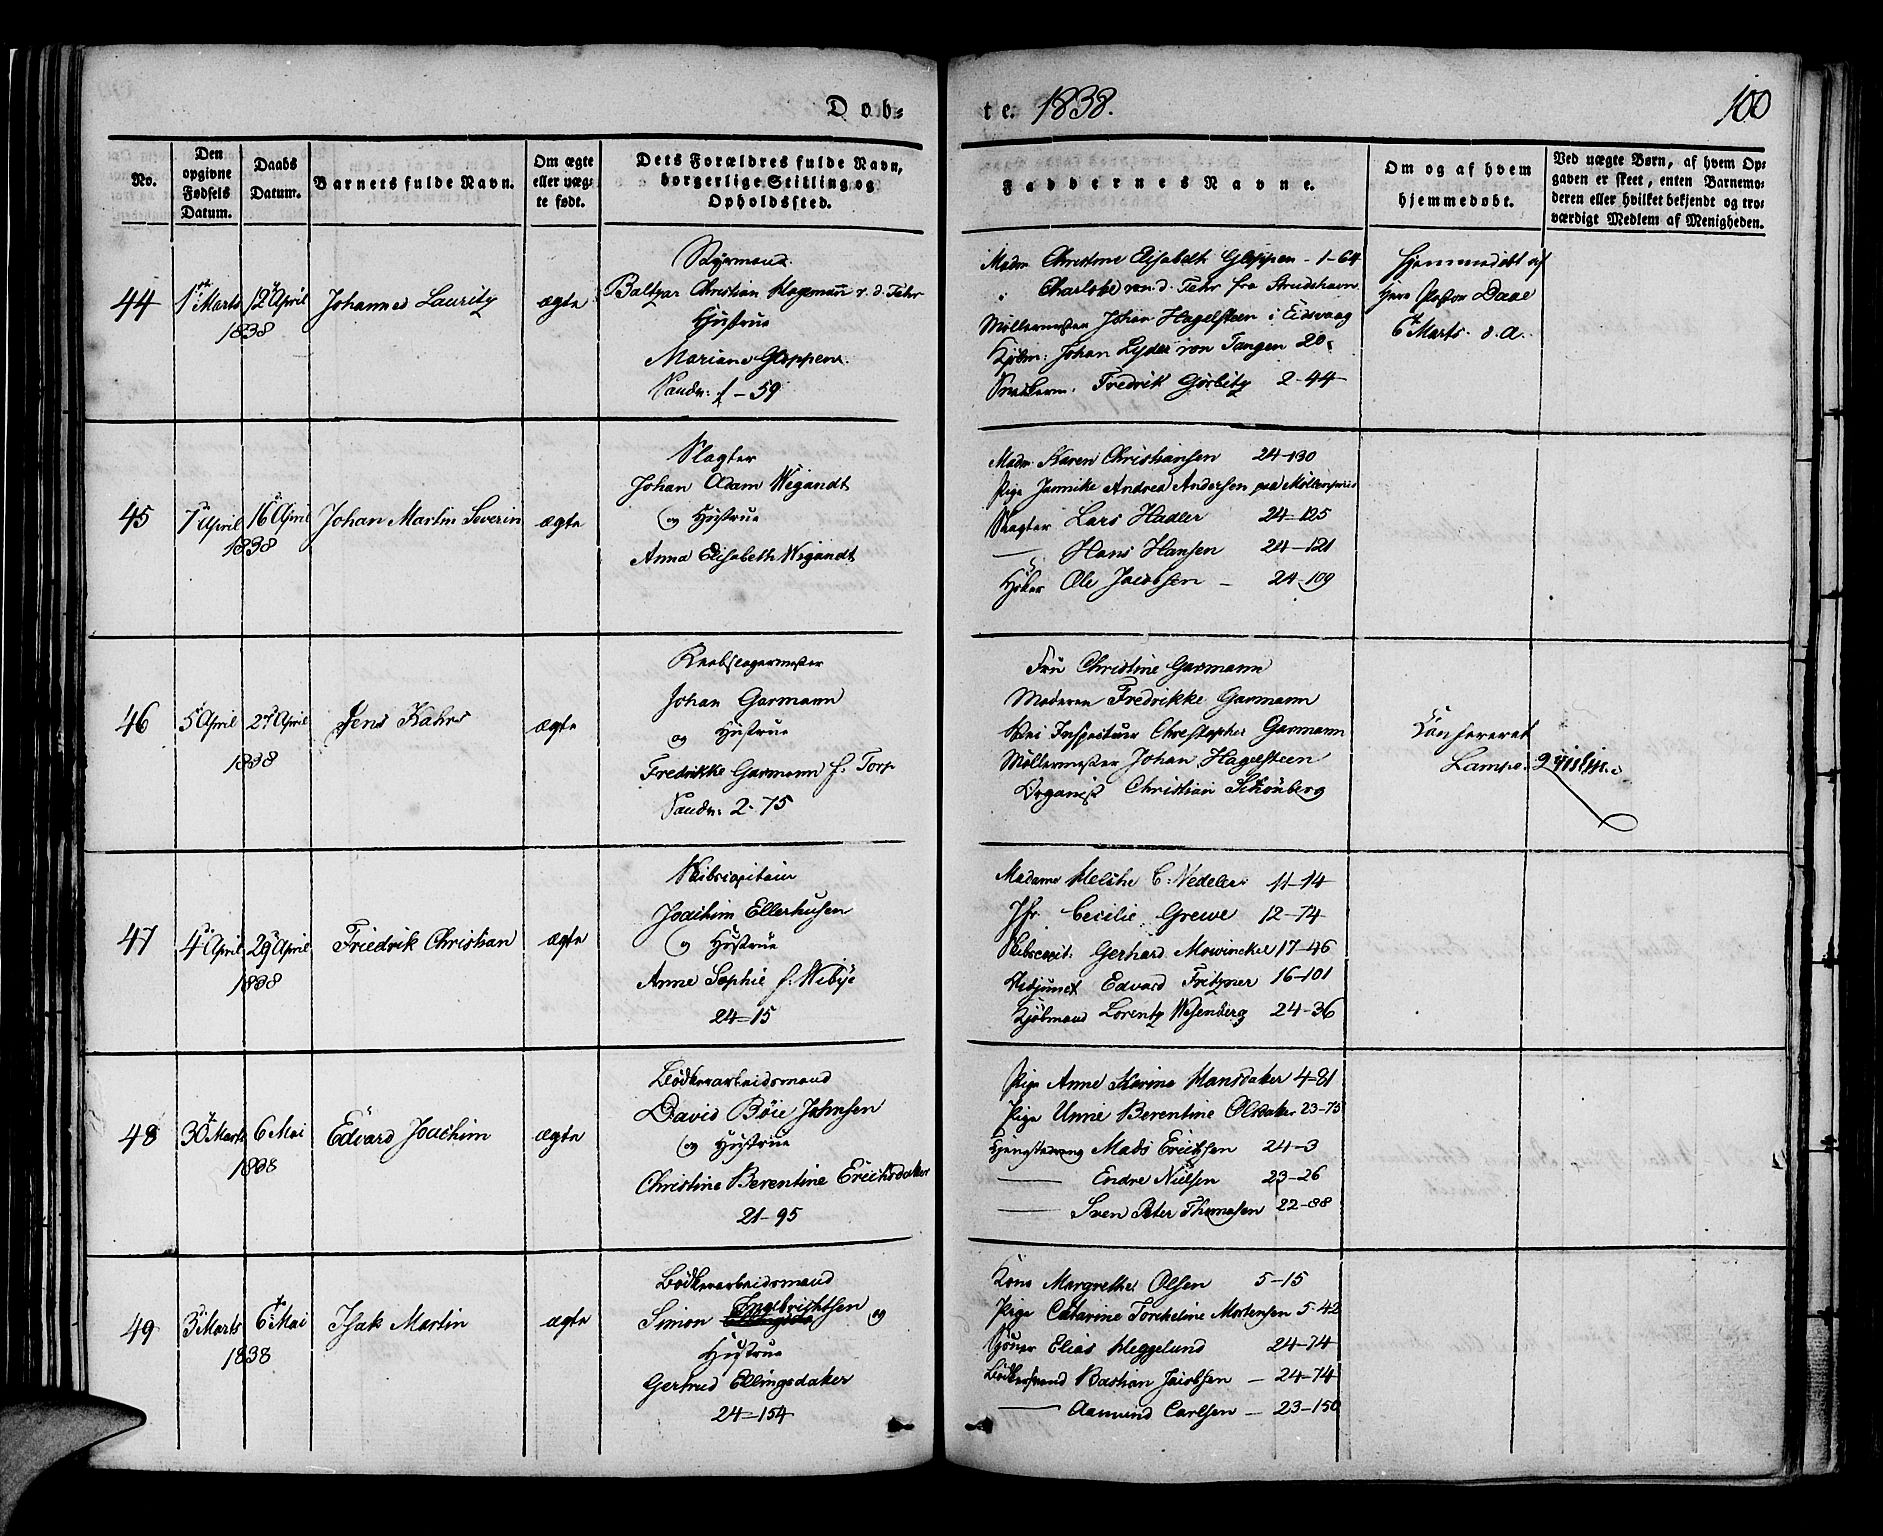 Døb-
te. 1838.
100
No.
Den opgivne Fødsels Datum.
Daabs Datum.
Barnets fulde Navn.
Om ægte eller uæg- te født.
Dets Forældres fulde Navn, borgerlige Stilling og Opholdssted.
Faddernes Navne.
Om og af hvem hjemmedøbt.
Ved uægte Børn, af hvem Op- gaven er skeet, enten Barnemo- deren eller hvilket bekjendt og tro- værdigt Medlem af Menigheden.
44
1ste Marts
12 April
1838
Johannes Lauritz
ægte
Styrmand
Baltzar Christian v. d. Fehr
Hustrue
Mariane Gloppen
Sandv: 1-59
Madm Christine Elisabeth Gloppen - 1-64
" Charlotte von d. Fehr fra Strudshavn
Møllermester Johan Hagelsteen i Eidsvaag
Kjøbm: Johan Lyder von Tangen 20
Fredrik Görbitz 2-44
Hjemmedøbt af
Herr Pastor Daae
6 Marts d. A.
45
7 April
16 April
1838
Johan Martin Severin
ægte
Slagter
Johan Adam Wigandt
og Hustrue
Anna Elisabeth Wigandt
Madm Karen Christiansen 24-130
Pige Jannike Andrea Andersen paa Møllenpriis
Slagter Lars Hadler 24-125
— Hans Hansen 24-121
Høker Ole Jacobsen - 24-109
46
5 April
27 April
1838
Jens Kahrs
ægte
Reebslagermester
Johan Garmann
og Hustrue
Fredrikke Garmann f. Torp
Sandv: 2-75
Fru Christine Garmann
Moderen Fredrikke Garmann
Inspecteur Christopher Garmann
Møllermester Johan Hagelsteen
Organist Christian Schönberg
47
4 April
29 April
1838
Friedrik Christian
ægte
Skibscapitain
Joachim Ellerhusen
og Hustrue
Anne Sophie f. Wibye
24-15
Madame C. Nedeler 11-14
Jfr. Cecilie Grewe 12-74
Skibscapit: Gerhard Mowinckel 17-46
Adjunct Edvard Fritzner 16-101
Kjøbmand Lorentz Wesenberg 24-36
48
30 Marts
6 Mai
1838
Edvard Joachim
ægte
Bødkerarbeidsmand
David Böie Johnsen
og Hustrue
Christine Berentine Erichsdatter
21-95
Pige Anne Karine Hansdatter 4-81
Pige Unne Berentine Olsdatter 23-75
Mads Erichsen 24-3
— Endre Nielsen 23-26
— Sven Peter Thomesen 22-88
49
3 Marts
6 Mai
1838
Isak Martin
ægte
Bødkerarbeidsmand
Simon Ingebrichtsen og
Hustrue
Gertrud Ellingsdatter
24-154
Kone Margrethe Olsen 5-15
Pige Catarine Torcheline Mortensen 5-42
Elias Heggelund 24-74
Bødkersvend Bastian Jacobsen - 24-74
— Aamund Carlsen - 23-150